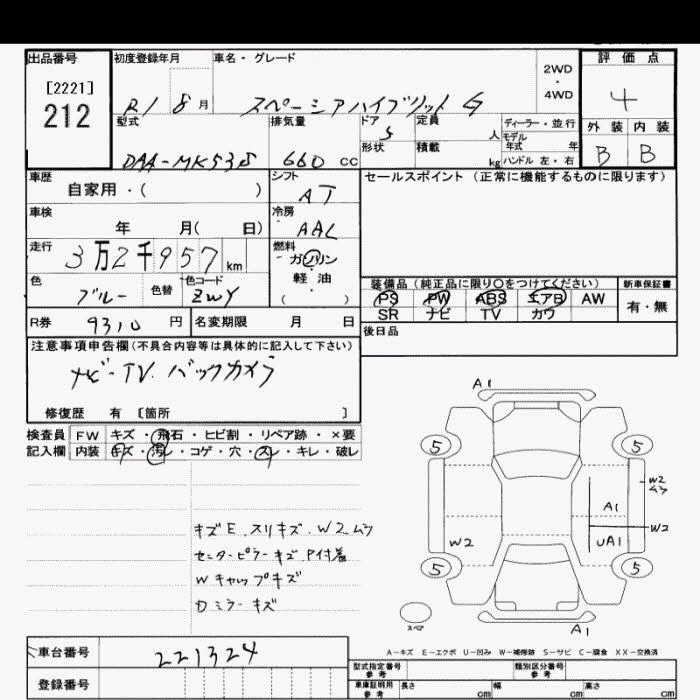 出品番号 初度登録年月 車名・グレード 2WD ・ 4WD 評価点
[2221]
212 R1 8月 スペーシアハイブリットG 4
型式 排気量 ドア 定員 人 ディーラー・並行 外装 内装
DAA-MK53S 660 cc 5 形状 積載 kg モデル年式 年 ハンドル 左・右 B B
車歴 自家用・( ) シフト AT セールスポイント (正常に機能するものに限ります)
車検 年 月( 日) 冷房 AAC
走行 3万2千957 km 燃料 ガソリン・軽油 ( )
色 ブルー 色替 色コード ZWY
装備品 (純正品に限り〇をつけてください) 新車保証書
PS PW ABS エアB AW 有・無
SR ナビ TV カワ
R券 9310 円 名変期限 月 日 後日品
注意事項申告欄(不具合内容等は具体的に記入して下さい)
ナビ-TV. バックカメラ
修復歴 有 [箇所 ]
検査員 FW キズ・飛石・ヒビ割・リペア跡・×要
記入欄 内装 キズ・汚レ・コゲ・穴・スレ・キレ・破レ
キズE.スリキズ.W2ムラ
センターピラーキズ.P付着
Wキャップキズ
Dミラーキズ
A1
5 5
W2 ムラ
A1
W2 W2
UA1
5 5
スペア
A1
A-キズ E-エクボ U-凹み W-補修跡 S-サビ C-腐食 XX-交換済
車台番号 221324
登録番号
型式指定番号 参考 類別区分番号 参考
車庫証明用 参考 長さ cm 幅 cm 高さ cm